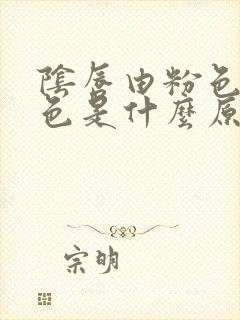 陰唇由粉色
色是什麼原
宗明